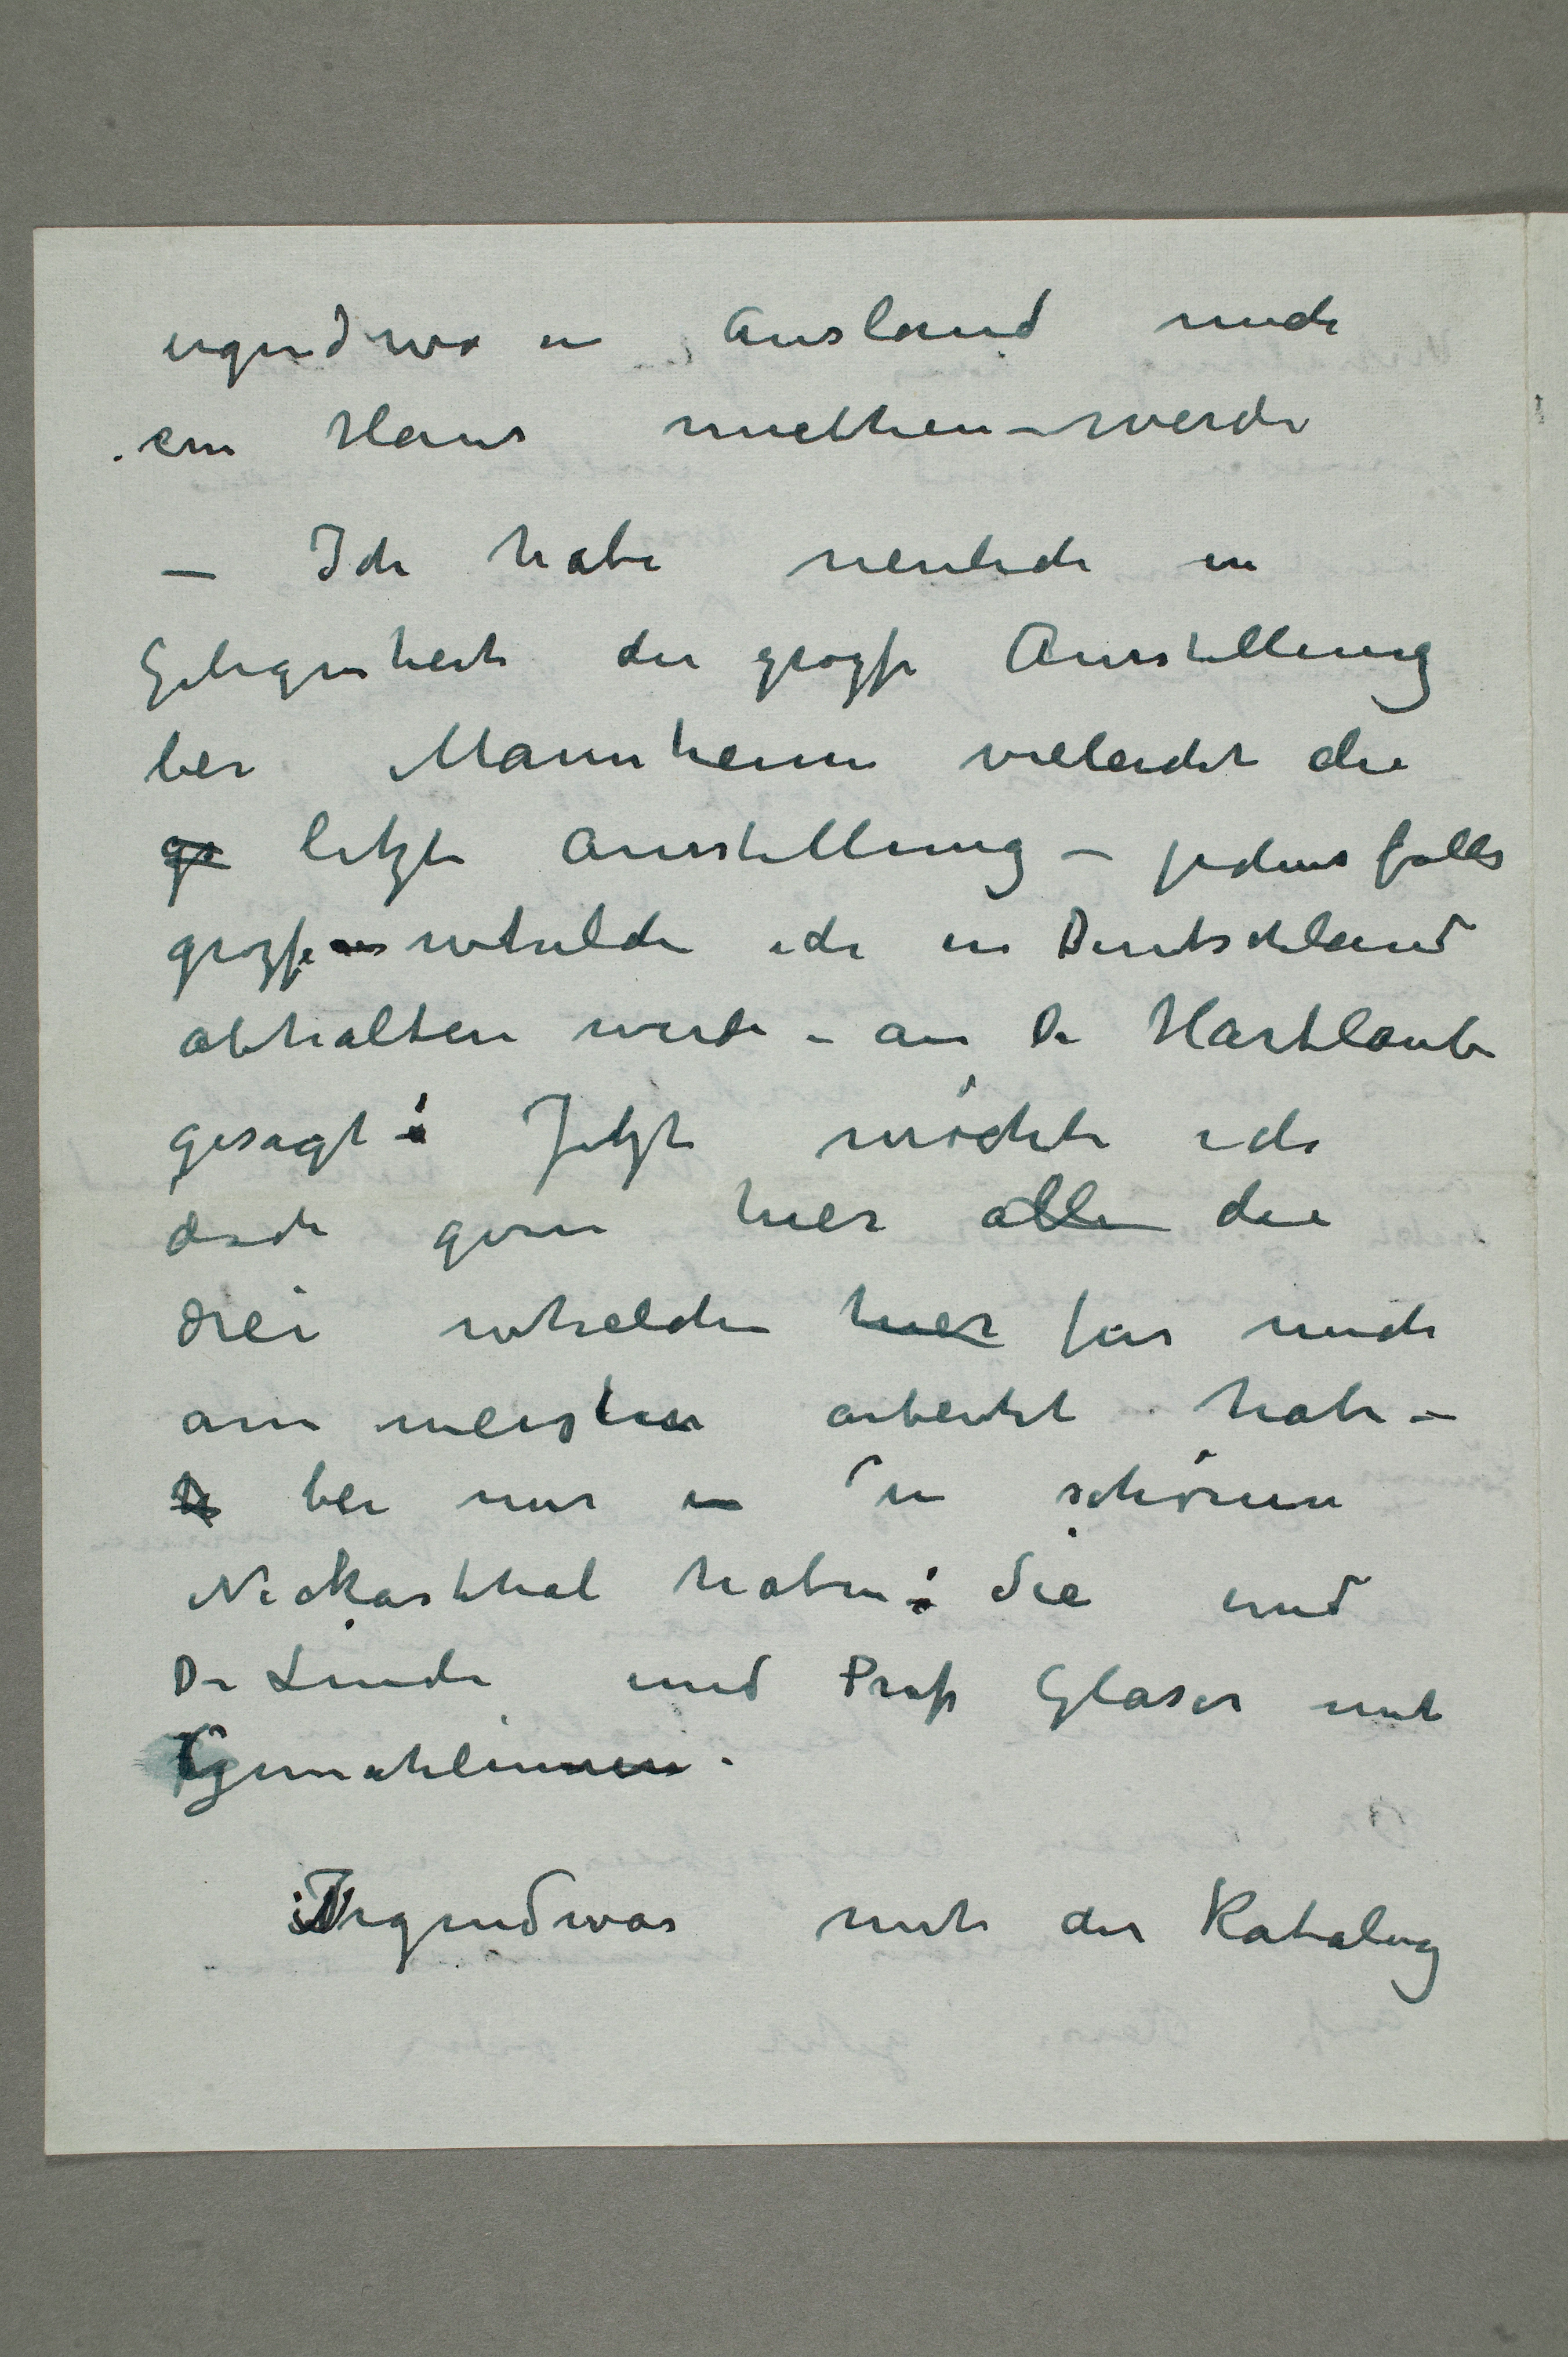 irgendwo in Ausland mich
ein Haus miethen – werde
– Ich habe neulich in
Gelegenheit der grosse Ausstellung
bei Mannheim vieleicht die
gr letzte Ausstellung – jedensfalls
grosse whelche ich in Deutschland
abhalten werde – an Dr Hartlaub
gesagt: Jetzt möchte ich
doch gern hier alle die
drei whelche hier für mich
am meisten arbeitet habe –
bei mir in in schönen
Neckarthal haben: Sie und
Dr Linde und Prof Glaser mit
Gemahlinnen.
Irgendwas mit der Katalog